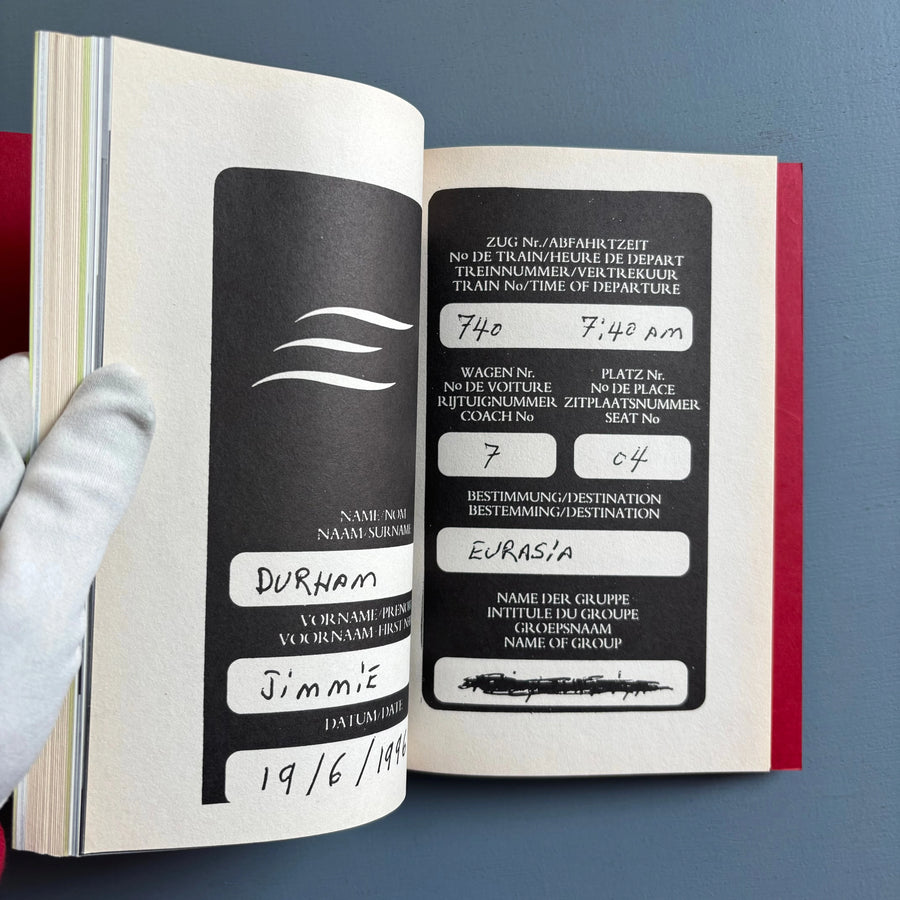 NAME/NOM
NAAM/SURNAME
DURHAM
VORNAME/PRENOM
VOORNAAM/FIRST
Jimmie
DATUM/DATE
19/6/1996
ZUG Nr./ABFAHRTZEIT
No DE TRAIN/HEURE DE DEPART
TREINNUMMER/VERTREKUUR
TRAIN No/TIME OF DEPARTURE
740 7:40 AM
WAGEN Nr.
No DE VOITURE
RIJTUIGNUMMER
COACH No
7
PLATZ Nr.
No DE PLACE
ZITPLAATSNUMMER
SEAT No
04
BESTIMMUNG/DESTINATION
BESTEMMING/DESTINATION
EURASiA
NAME DER GRUPPE
INTITULE DU GROUPE
GROEPSNAAM
NAME OF GROUP